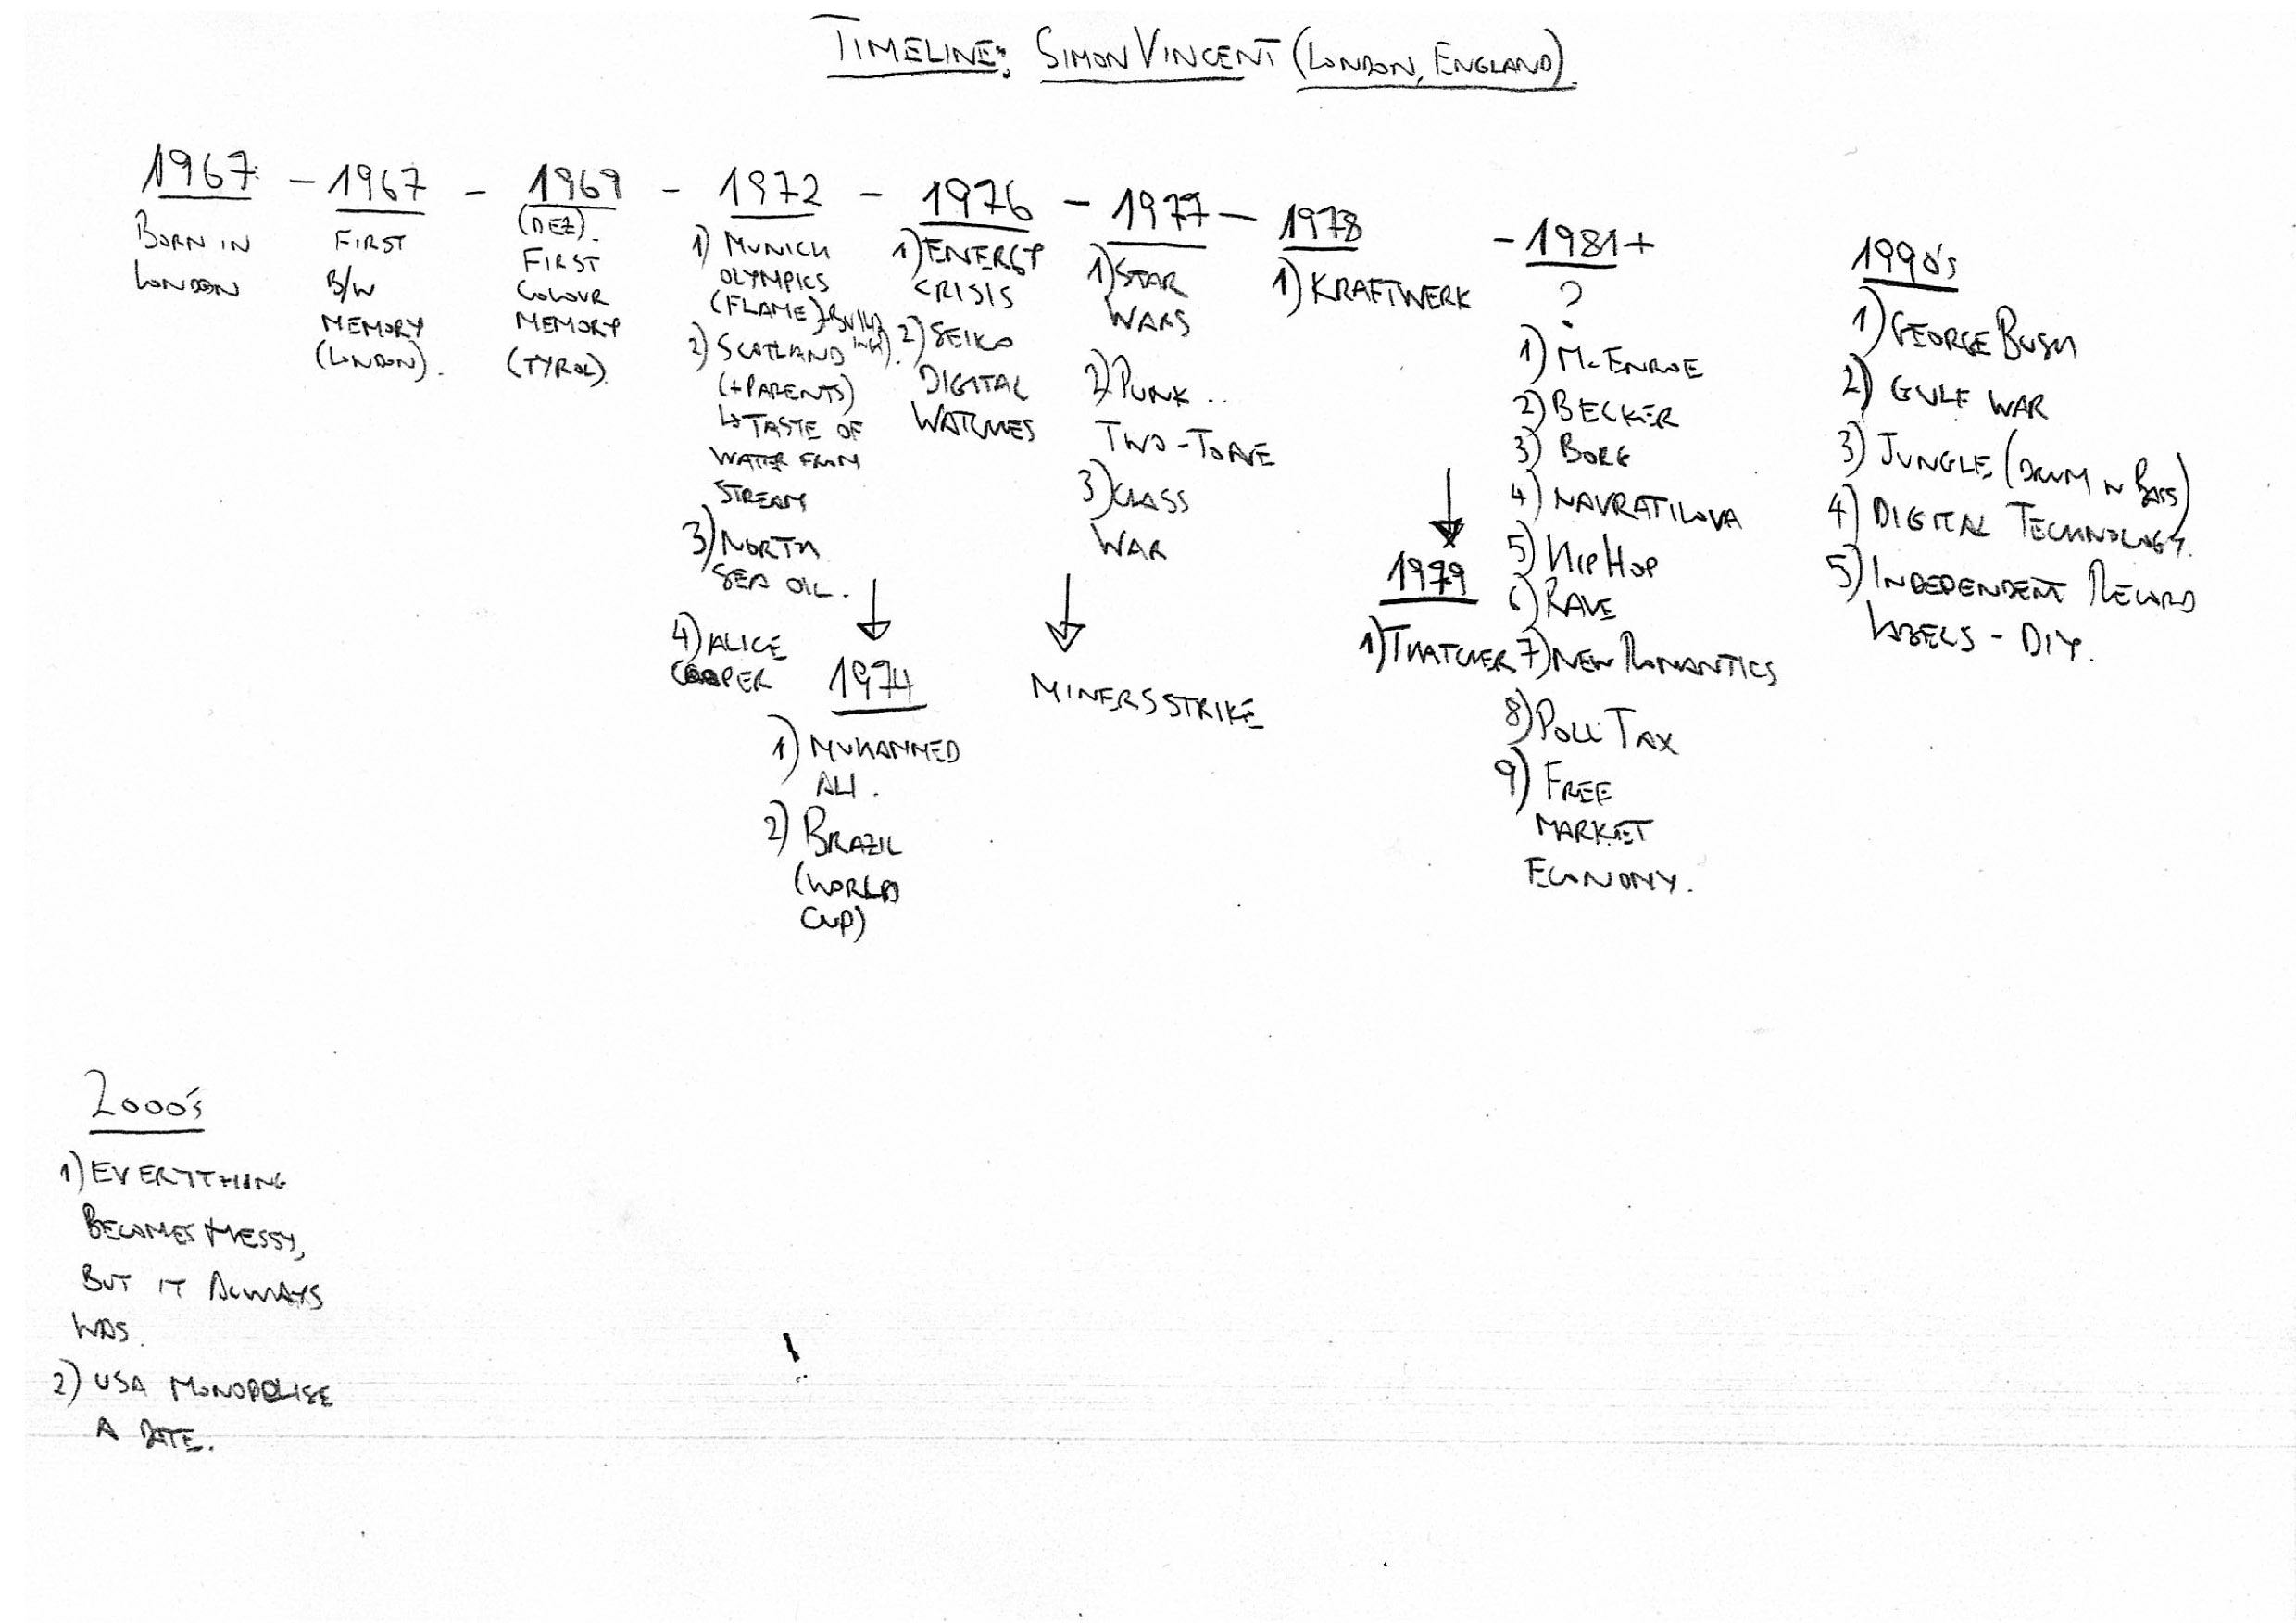 TIMELINE: SIMON VINCENT (LONDON, ENGLAND).
1967
BORN IN
LONDON
- 1967
FIRST
B/W
MEMORY
(LONDON).
- 1969
(DEZ).
FIRST
COLOUR
MEMORY
(TYROL).
- 1972
1) MUNICH
OLYMPICS
(FLAME)
2) SCOTLAND
(+PARENTS)
↳ TASTE OF
WATER FROM
STREAM
3) NORTH
SEA OIL.
4) ALICE
COOPER
↓
1974
1) MUHAMMED
ALI.
2) BRAZIL
(WORLD
CUP)
- 1976
1) ENERGY
CRISIS
2) SEIKO
DIGITAL
WATCHES
- 1977 -
1) STAR
WARS
2) PUNK..
TWO-TONE
3) CLASS
WAR
↓
MINERS STRIKE
1978
1) KRAFTWERK
↓
1979
1) THATCHER
- 1981+
?
1) McENROE
2) BECKER
3) BORG
4) NAVRATILOVA
5) HIP HOP
6) RAVE
7) NEW ROMANTICS
8) POLL TAX
9) FREE
MARKET
ECONOMY.
1990's
1) GEORGE BUSH
2) GULF WAR
3) JUNGLE (DRUM N BASS)
4) DIGITAL TECHNOLOGY.
5) INDEPENDENT RECORD
LABELS - DIY.
2000's
1) EVERYTHING
BECOMES MESSY,
BUT IT ALWAYS
WAS.
2) USA MONOPOLISE
A DATE.